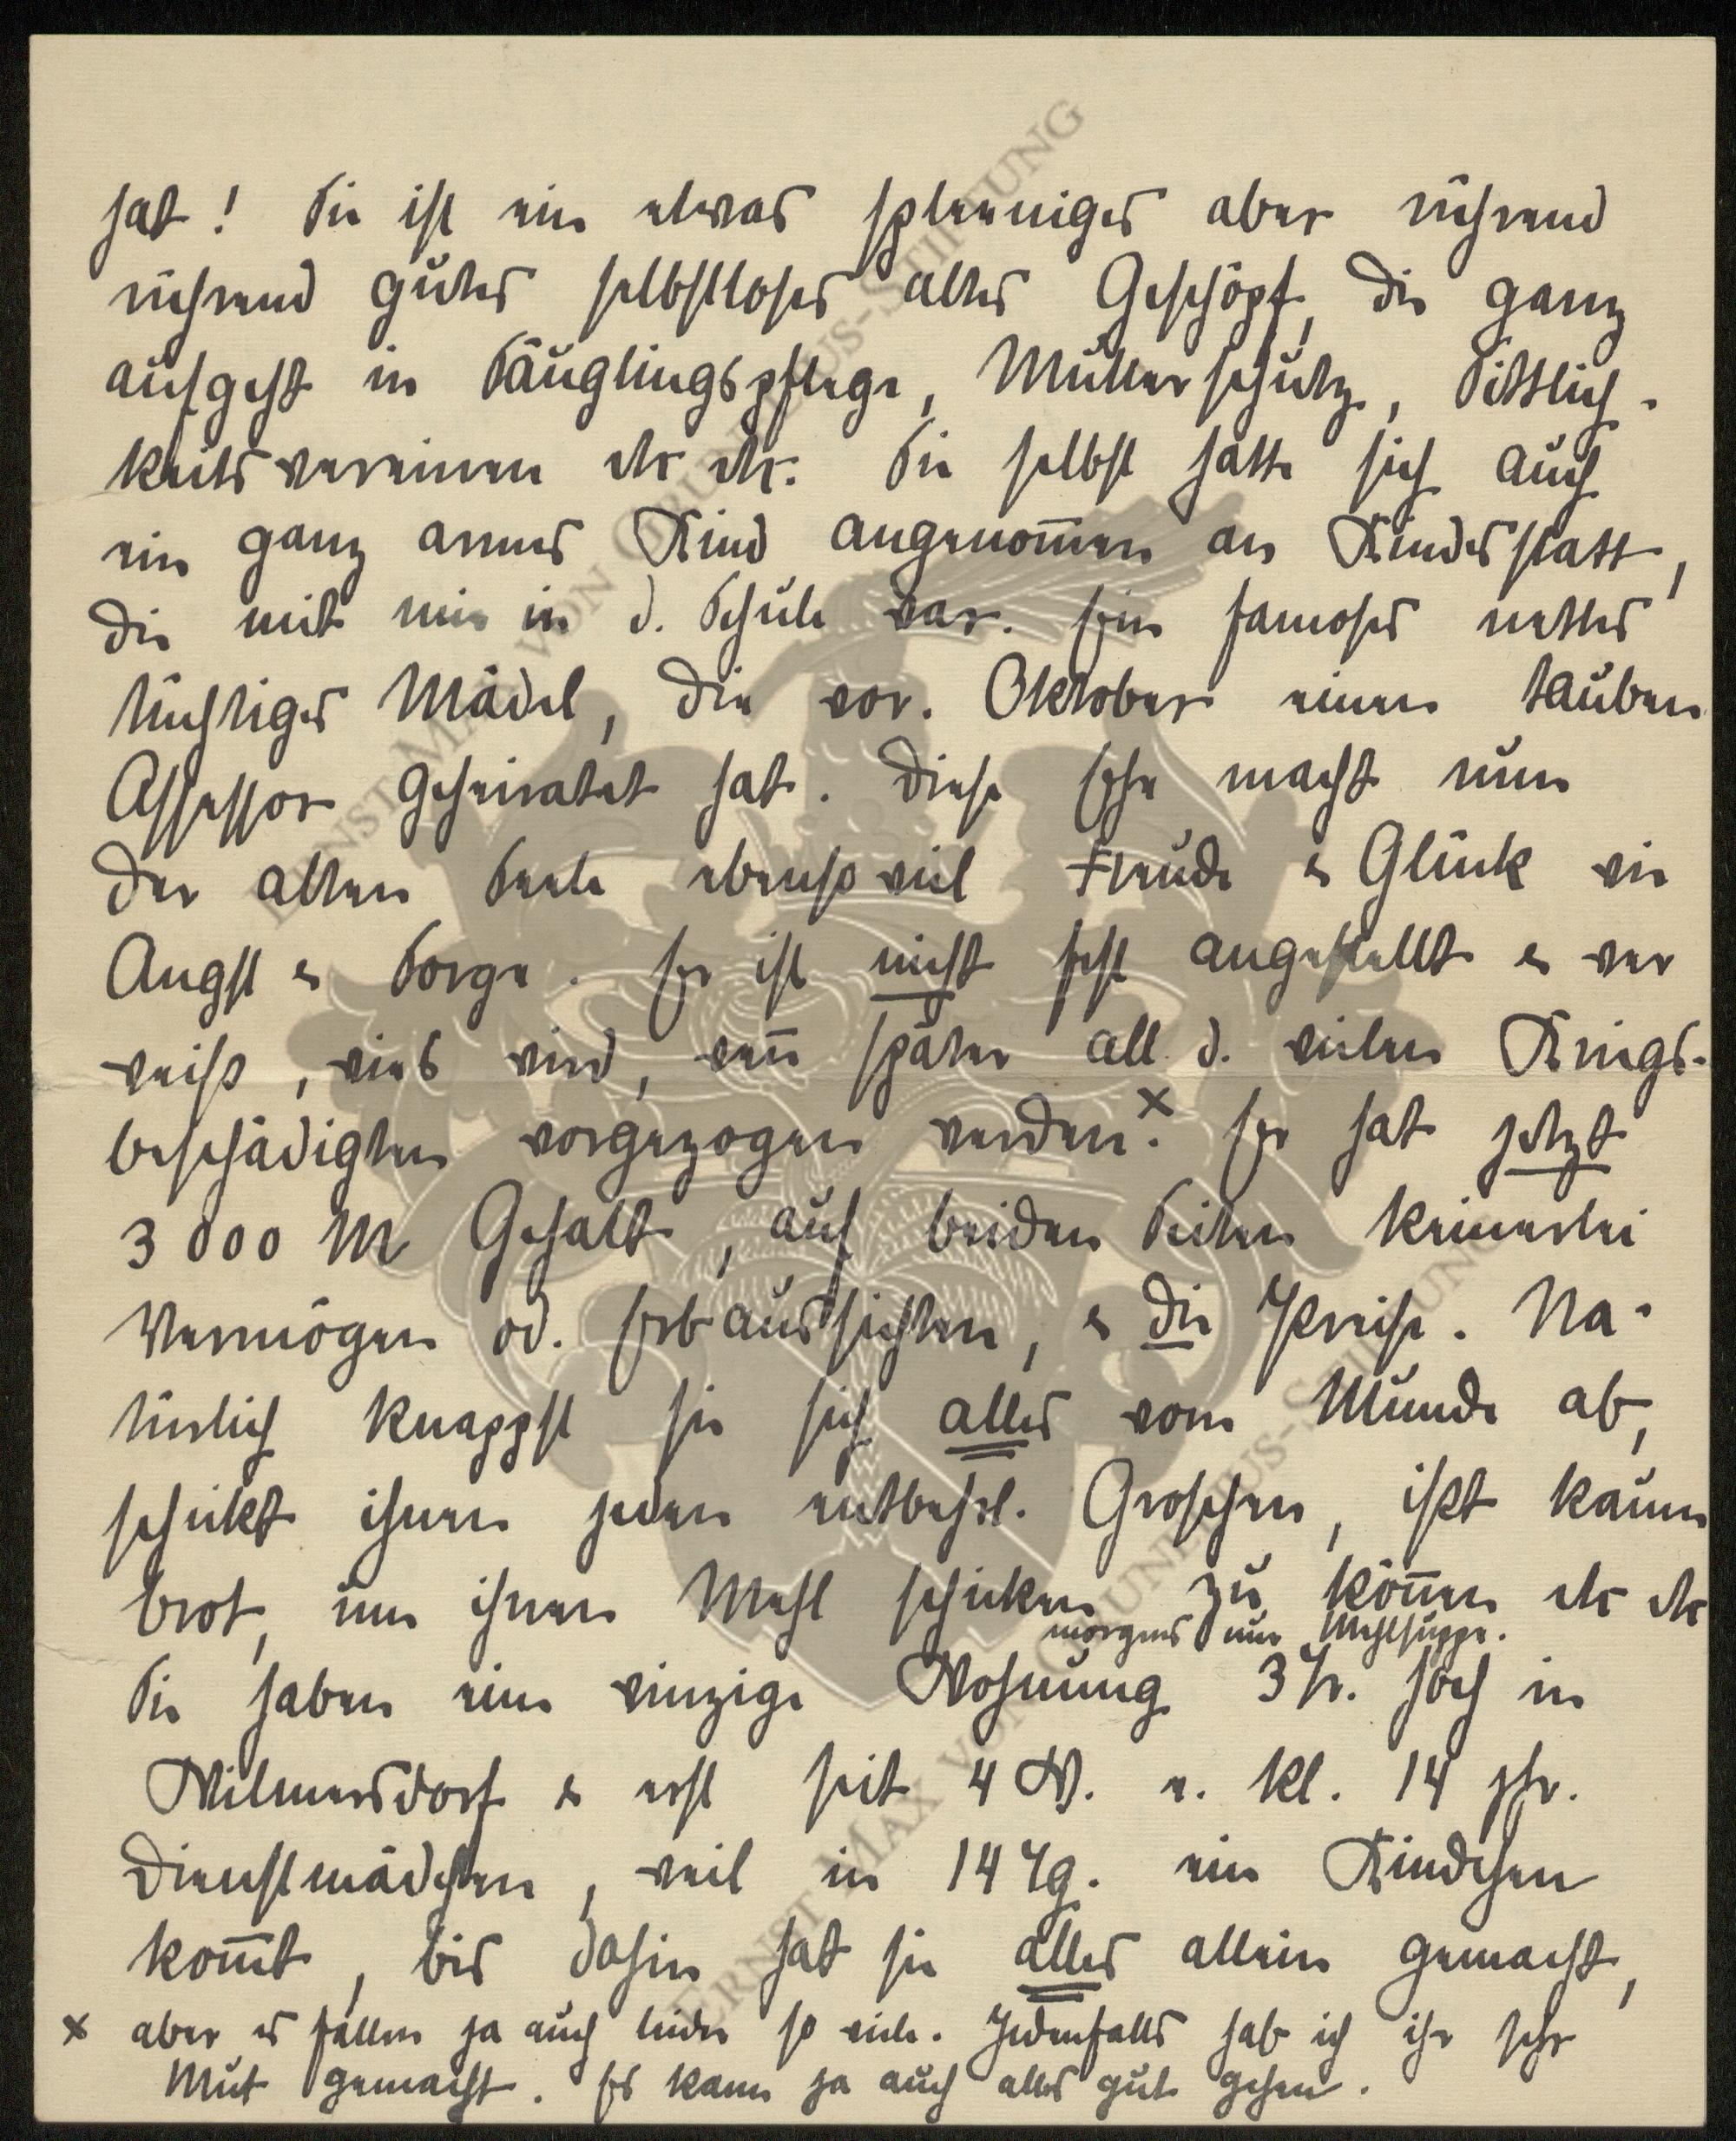 hat! Sie ist ein etwas spleeniges aber rührend
rührend gutes selbstloses altes Geschöpf, die ganz
aufgeht in Säuglingspflege, Mutterschutz, Sittlich-
keitsvereinen etc etc. Sie selbst hatte sich auch
ein ganz armes Kind angenom̅en an Kindesstatt,
die mit mir in d. Schule war. Ein famoses nettes
tüchtiges Mädel, die vor. Oktober einen tauben
Assessor geheiratet hat. Diese Ehe macht nun
der alten Seele ebenso viel Freude & Glück wie
Angst & Sorge. Er ist nicht fest angestellt & wer
weiss, wies wird, wen̅ später all d. vielen Kriegs-
beschädigten vorgezogen werden.x Er hat jetzt
3000 M Gehalt, auf beiden Seiten keinerlei
Vermögen od. Erbaussichten, & die Preise. Na-
türlich knappst sie sich alles vom Munde ab,
schickt ihnen jeden entbehrl. Groschen, isst kaum
Brot, um ihnen Mehl schicken zu kön̅en etc etc
morgens nur Mehlsuppe.
Sie haben eine winzige Wohnung 3 Tr. hoch in
Wilmersdorf & erst seit 4 W. e. kl. 14 jhr.
Dienstmädchen, weil in 14 Tg. ein Kindchen
kom̅t, bis dahin hat sie alles allein gemacht,
x aber es fallen ja auch leider so viele. Jedenfalls hab ich ihr sehr
Mut gemacht. Es kann ja auch alles gut gehen.
ERNST MAX VON GRUNELIUS-STIFTUNG
ERNST MAX VON GRUNELIUS-STIFTUNG